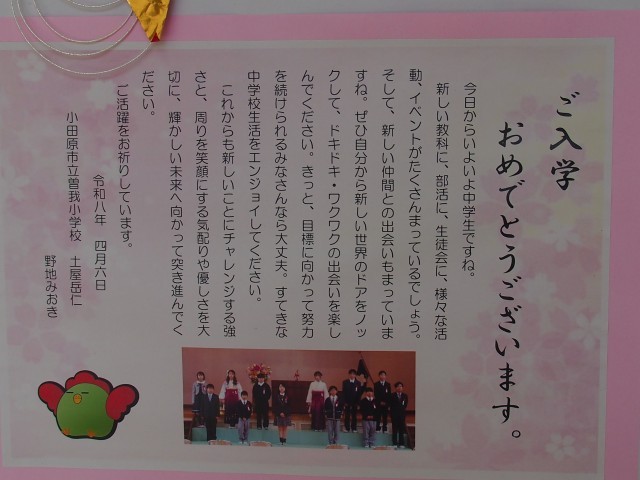 ご入学
おめでとうございます。
今日からいよいよ中学生ですね。
新しい教科に、部活に、生徒会に、様々な活
動、イベントがたくさんまっているでしょう。
そして、新しい仲間との出会いもまっていま
すね。ぜひ自分から新しい世界のドアをノッ
クして、ドキドキ・ワクワクの出会いを楽し
んでください。きっと、目標に向かって努力
を続けられるみなさんなら大丈夫。すてきな
中学校生活をエンジョイしてください。
これからも新しいことにチャレンジする強
さと、周りを笑顔にする気配りや優しさを大
切に、輝かしい未来へ向かって突き進んでく
ださい。
ご活躍をお祈りしています。
令和八年 四月六日
小田原市立曽我小学校 土屋岳仁
野地みおき